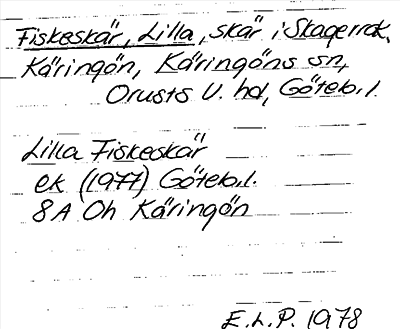 Fiskeskär, Lilla, skär i Skagerrak,
Käringön, Käringöns sn,
Orusts V. hd, Göteb.l.
Lilla Fiskeskär
ek (1977) Göteb.l.
8A Oh Käringön
E.L.P. 1978